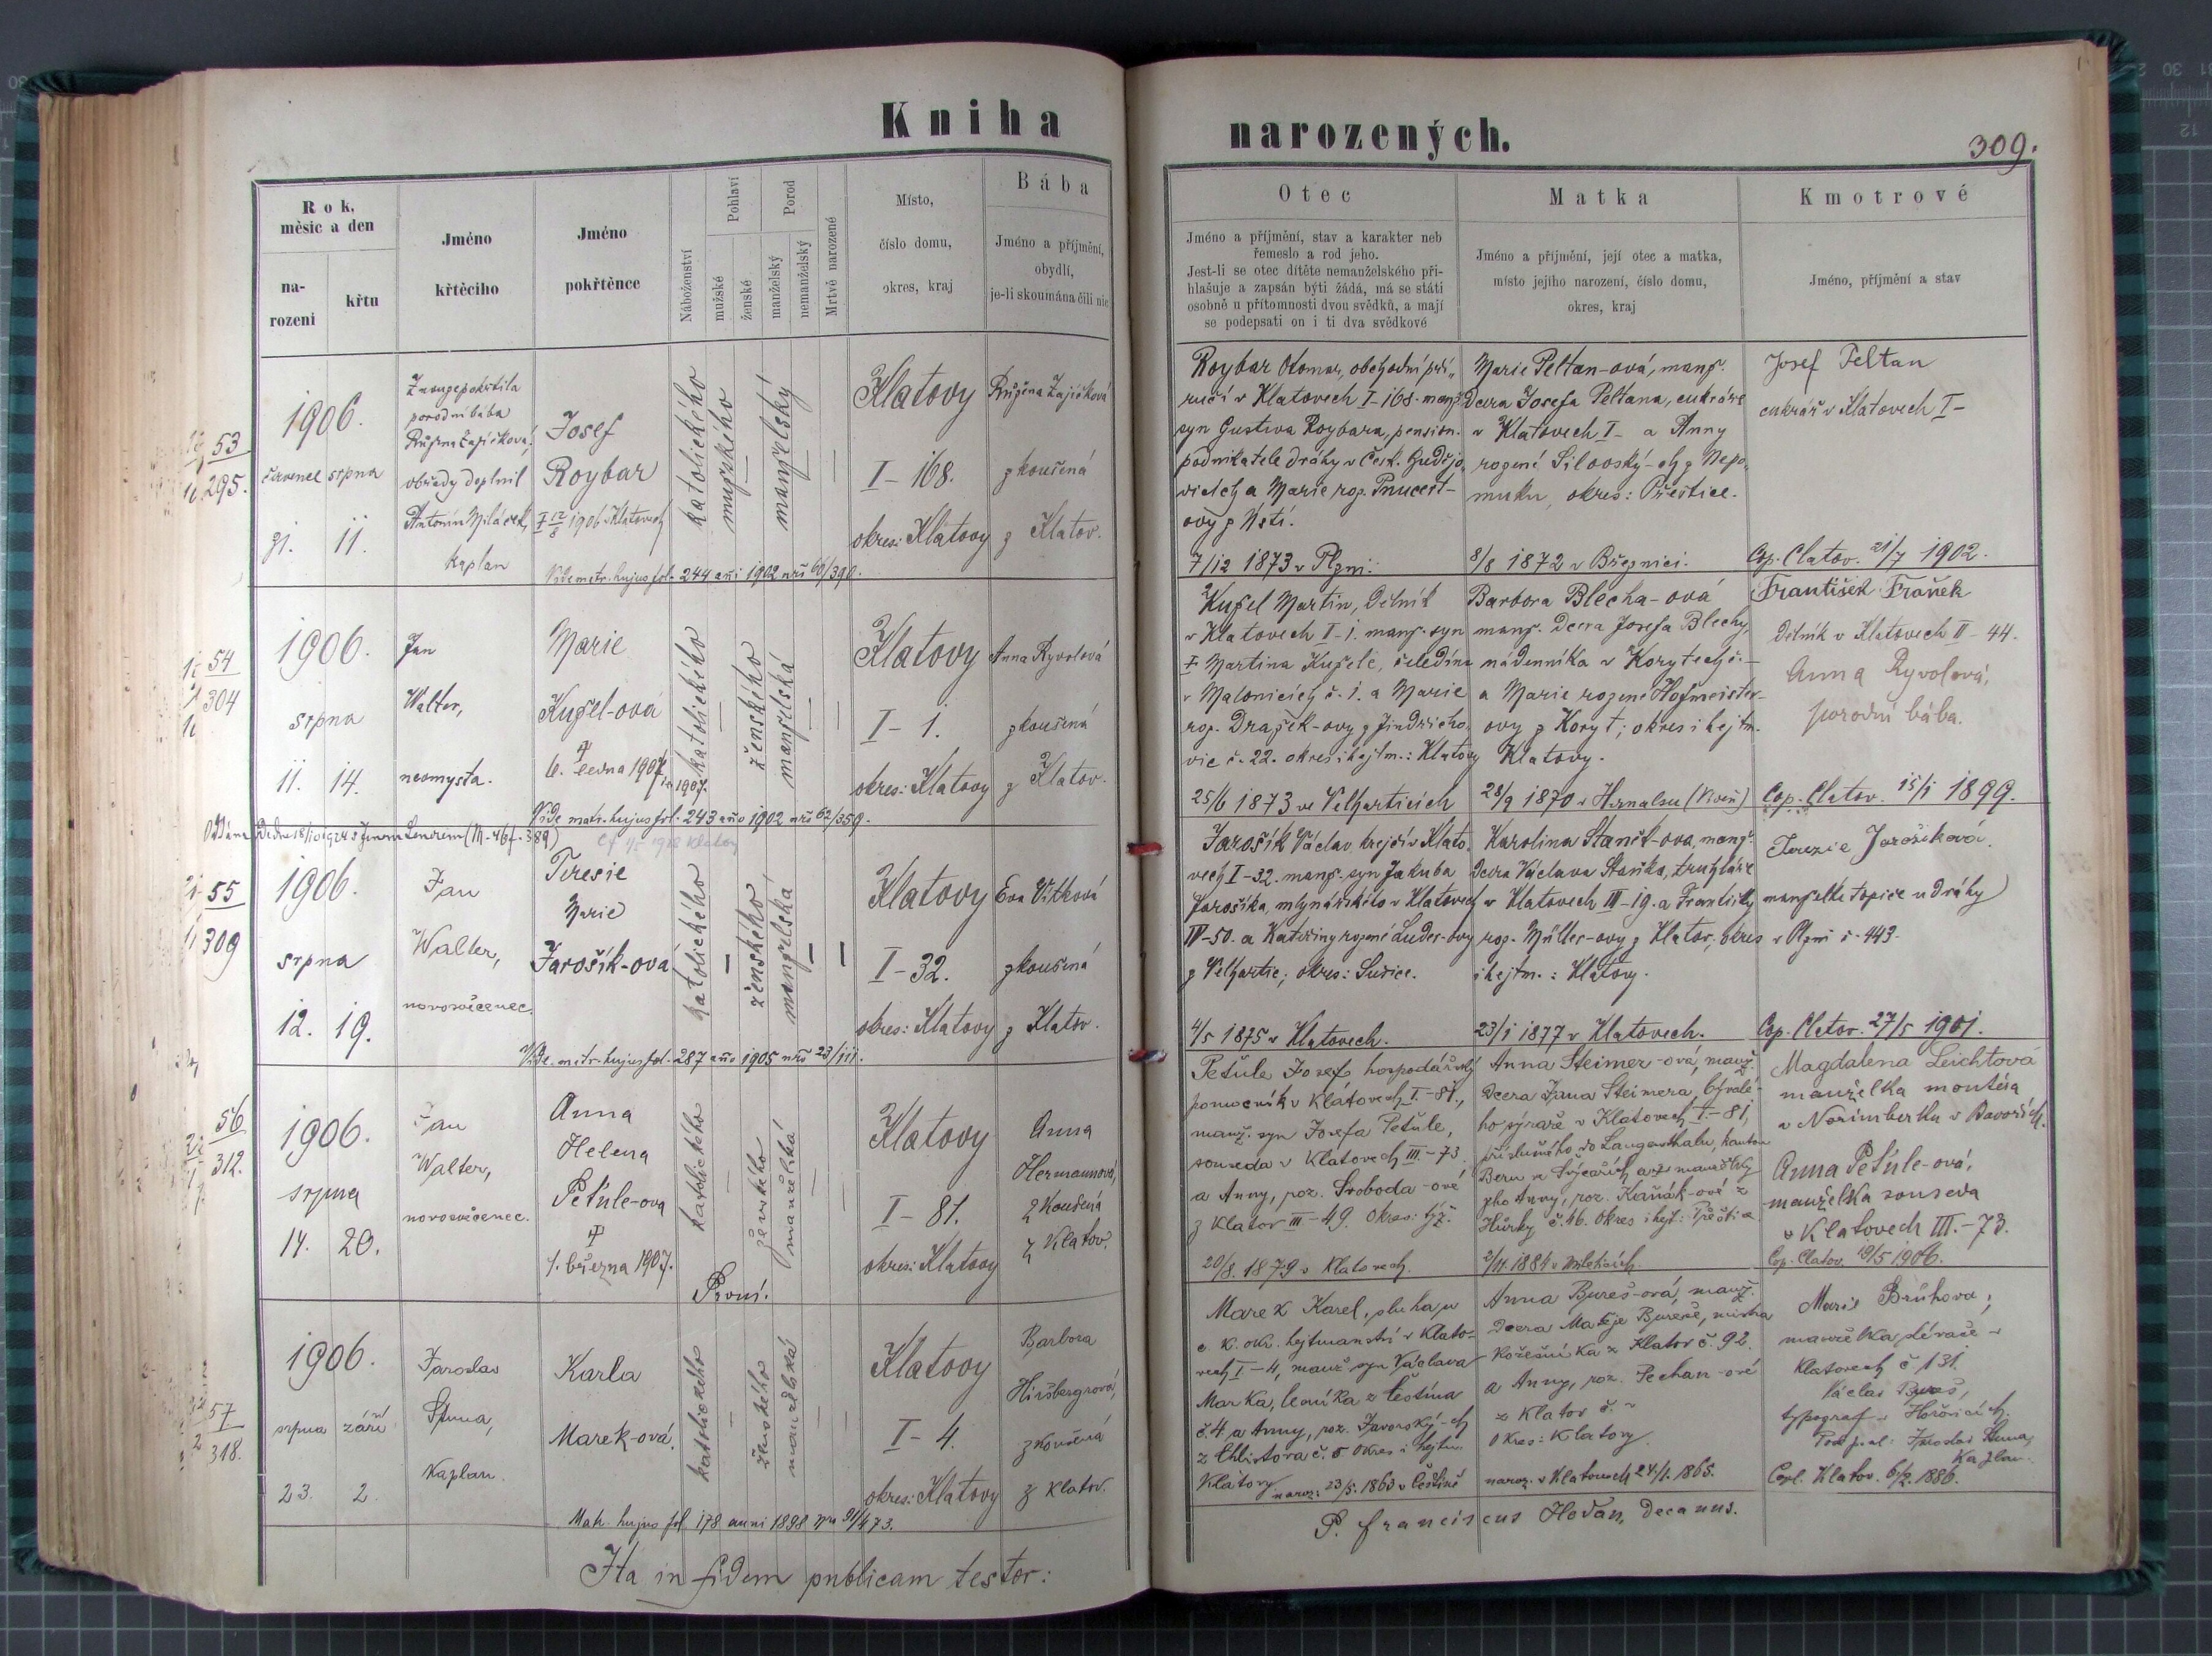 Kniha
narozených.
309.
Rok,
měsíc a den
na-
rozeni
křtu
Jméno
křtěcího
Jméno
pokřtěnce
Náboženství
Pohlaví
mužské
ženské
Porod
manželský
nemanželský
Mrtvě narozené
Místo,
číslo domu,
okres, kraj
Bába
Jméno a příjmění,
obydlí,
je-li skoumána čili nic
Otec
Jméno a příjmění, stav a karakter neb
řemeslo a rod jeho.
Jest-li se otec dítěte nemanželského při-
hlašuje a zapsán býti žádá, má se státi
osobně u přítomnosti dvou svědků, a mají
se podepsati on i ti dva svědkové
Matka
Jméno a příjmění, její otec a matka,
místo jejího narození, číslo domu,
okres, kraj
Kmotrové
Jméno, příjmění a stav
53
295.
1906.
červenec srpna
31. 11.
porodní bába
Růžena Zajíčková,
obřady doplnil
Antonín
kaplan
Josef
Roybar
katolického
mužského
manželský
Klatovy
I-168.
okres: Klatovy
Růžena Zajíčková
zkoušená
z Klatov.
Vide matr. hujus fol. 244 anni 1902 nrū 60/390.
Roybar Otomar, obchodní pří-
ručí v Klatovech I-168. manž.
syn Gustva Roybara, pension.
podnikatele dráhy v Česk. Budějo-
vicích a Marie roz.
ovy z Ústí.
7/12 1873 v Plzni.
Marie Peltan-ová, manž.
dcera Josefa Peltana, cukráře
v Klatovech I- a Anny
rozené Silovský-ch z Nepo-
muku, okres: Přeštice.
8/8 1872 v Březnici.
Josef Peltan
cukrář v Klatovech I-
Cop. Clatov. 21/7 1902.
54
304
1906.
srpna
11. 14.
Jan
Walter,
neomysta.
Marie
Kužel-ová
6. ledna 1907
katolického
ženského
manželská
Klatovy
I-1.
okres: Klatovy
Anna Ryvolová
zkoušená
z Klatov.
Vide matr. hujus fol. 243 año 1902 nrū 62/359.
Kužel Martin, dělník
v Klatovech I-1. manž. syn
Martina Kužele, čeledína
v Malonicích č. 1. a Marie
roz. Dražek-ovy z Jindřicho-
vic č. 22. okres i hejtm.: Klatovy
25/6 1873 ve Velharticích
Barbora Blecha-ová
manž. dcera Josefa Blechy,
nádenníka v Korytech č.-
a Marie rozené Hofmeister-
ovy z Koryt; okres i hejtm.
Klatovy.
28/9 1870 v Hernalsu (Vídeň)
František Fraňek
dělník v Klatovech II-44.
Anna Ryvolová,
porodní bába.
Cop. Clatov. 15/1 1899.
55
309
1906.
srpna
12. 19.
Jan
Walter,
novosvěcenec.
Teresie
Marie
Jarošík-ová
katolického
ženského
manželská
Klatovy
I-32.
okres: Klatovy
Eva Vítková
zkoušená
z Klatov.
Vide matr. hujus fol. 287 año 1905 nrū 23/111.
Jarošík Václav, krejčí v Klato-
vech I-32. manž. syn Jakuba
Jarošíka, mlynářského v Klatovech
IV-50. a Kateřiny rozené Luder-ovy
z Velhartic; okres: Sušice.
4/5 1875 v Klatovech.
Karolina Staněk-ová, manž.
dcera Václava Staňka, truhláře
v Klatovech III-19. a Františky
roz. Müller-ovy z Klatov, okres
i hejtm.: Klatovy.
23/1 1877 v Klatovech.
Terezie Jarošíková.
manželka topiče u dráhy
v Plzni č. 443.
Cop. Clatov. 27/5 1901.
56
312.
1906.
srpna
14. 20.
Jan
Walter,
novosvěcenec.
Anna
Helena
Petule-ova
1. března 1907.
katolického
ženského
manželská
Klatovy
I-81.
okres: Klatovy
Anna
Hermannová,
zkoušená
z Klatov.
První.
Petule Josef hospodářský
pomocník v Klatovech I.-81.,
manž. syn Josefa Petule,
souseda v Klatovech III.-73
a Anny, roz. Svoboda-ové
z Klatov III-49. Okres: týž.
20/8. 1879 v Klatovech.
Anna Steimer-ová, manž.
dcera Jana Steimera,
ho sýraře v Klatovech I.-81,
příslušného do Langenthalu, kanton
Bern ve Švýcařích a
Anny, roz. Kaňák-ové z
Hůrky č. 46. Okres i hejt: Přeštice
2/11. 1884 v
Magdalena Leichtová
manželka montéra
v Norimberku v Bavořích.
Anna Petule-ová,
manželka souseda
v Klatovech III.-73.
Cop. Clatov. 19/5 1906.
57
318.
1906.
srpna září
23. 2.
Jaroslav
Sluma,
Kaplan.
Karla
Marek-ová.
katolického
ženského
manželská
Klatovy
I-4.
okres: Klatovy
Barbora
Hirsbergrová,
zkoušená
z Klatov.
Matr. hujus fol 178 anni 1898 nru 91/473.
Marek Karel, sluha u
c. k. okr. hejtmanství v Klato-
vech I-4, manž syn Václava
Marka, z Čeština
č. 4 a Anny, roz. Javorský-ch
z Chlistova č. 5 Okres i hejtm.
Klatovy naroz: 23/5. 1863 v Češtině
Anna Bureš-ová, manž.
dcera Matěje Bureše, mistra
kožešníka z Klatov č. 92.
a Anny, roz. Pechan-ové
z Klatov č.
Okres: Klatovy.
naroz. v Klatovech 24/1. 1865.
Marie Brůhova,
manželka
Klatovech č 131.
Václav Bureš,
typograf v Hořovicích.
Kaplan.
Copl. Klatov. 6/2. 1886.
Ita in fidem publicam testor:
P. Franciscus Hodan, Decanus.